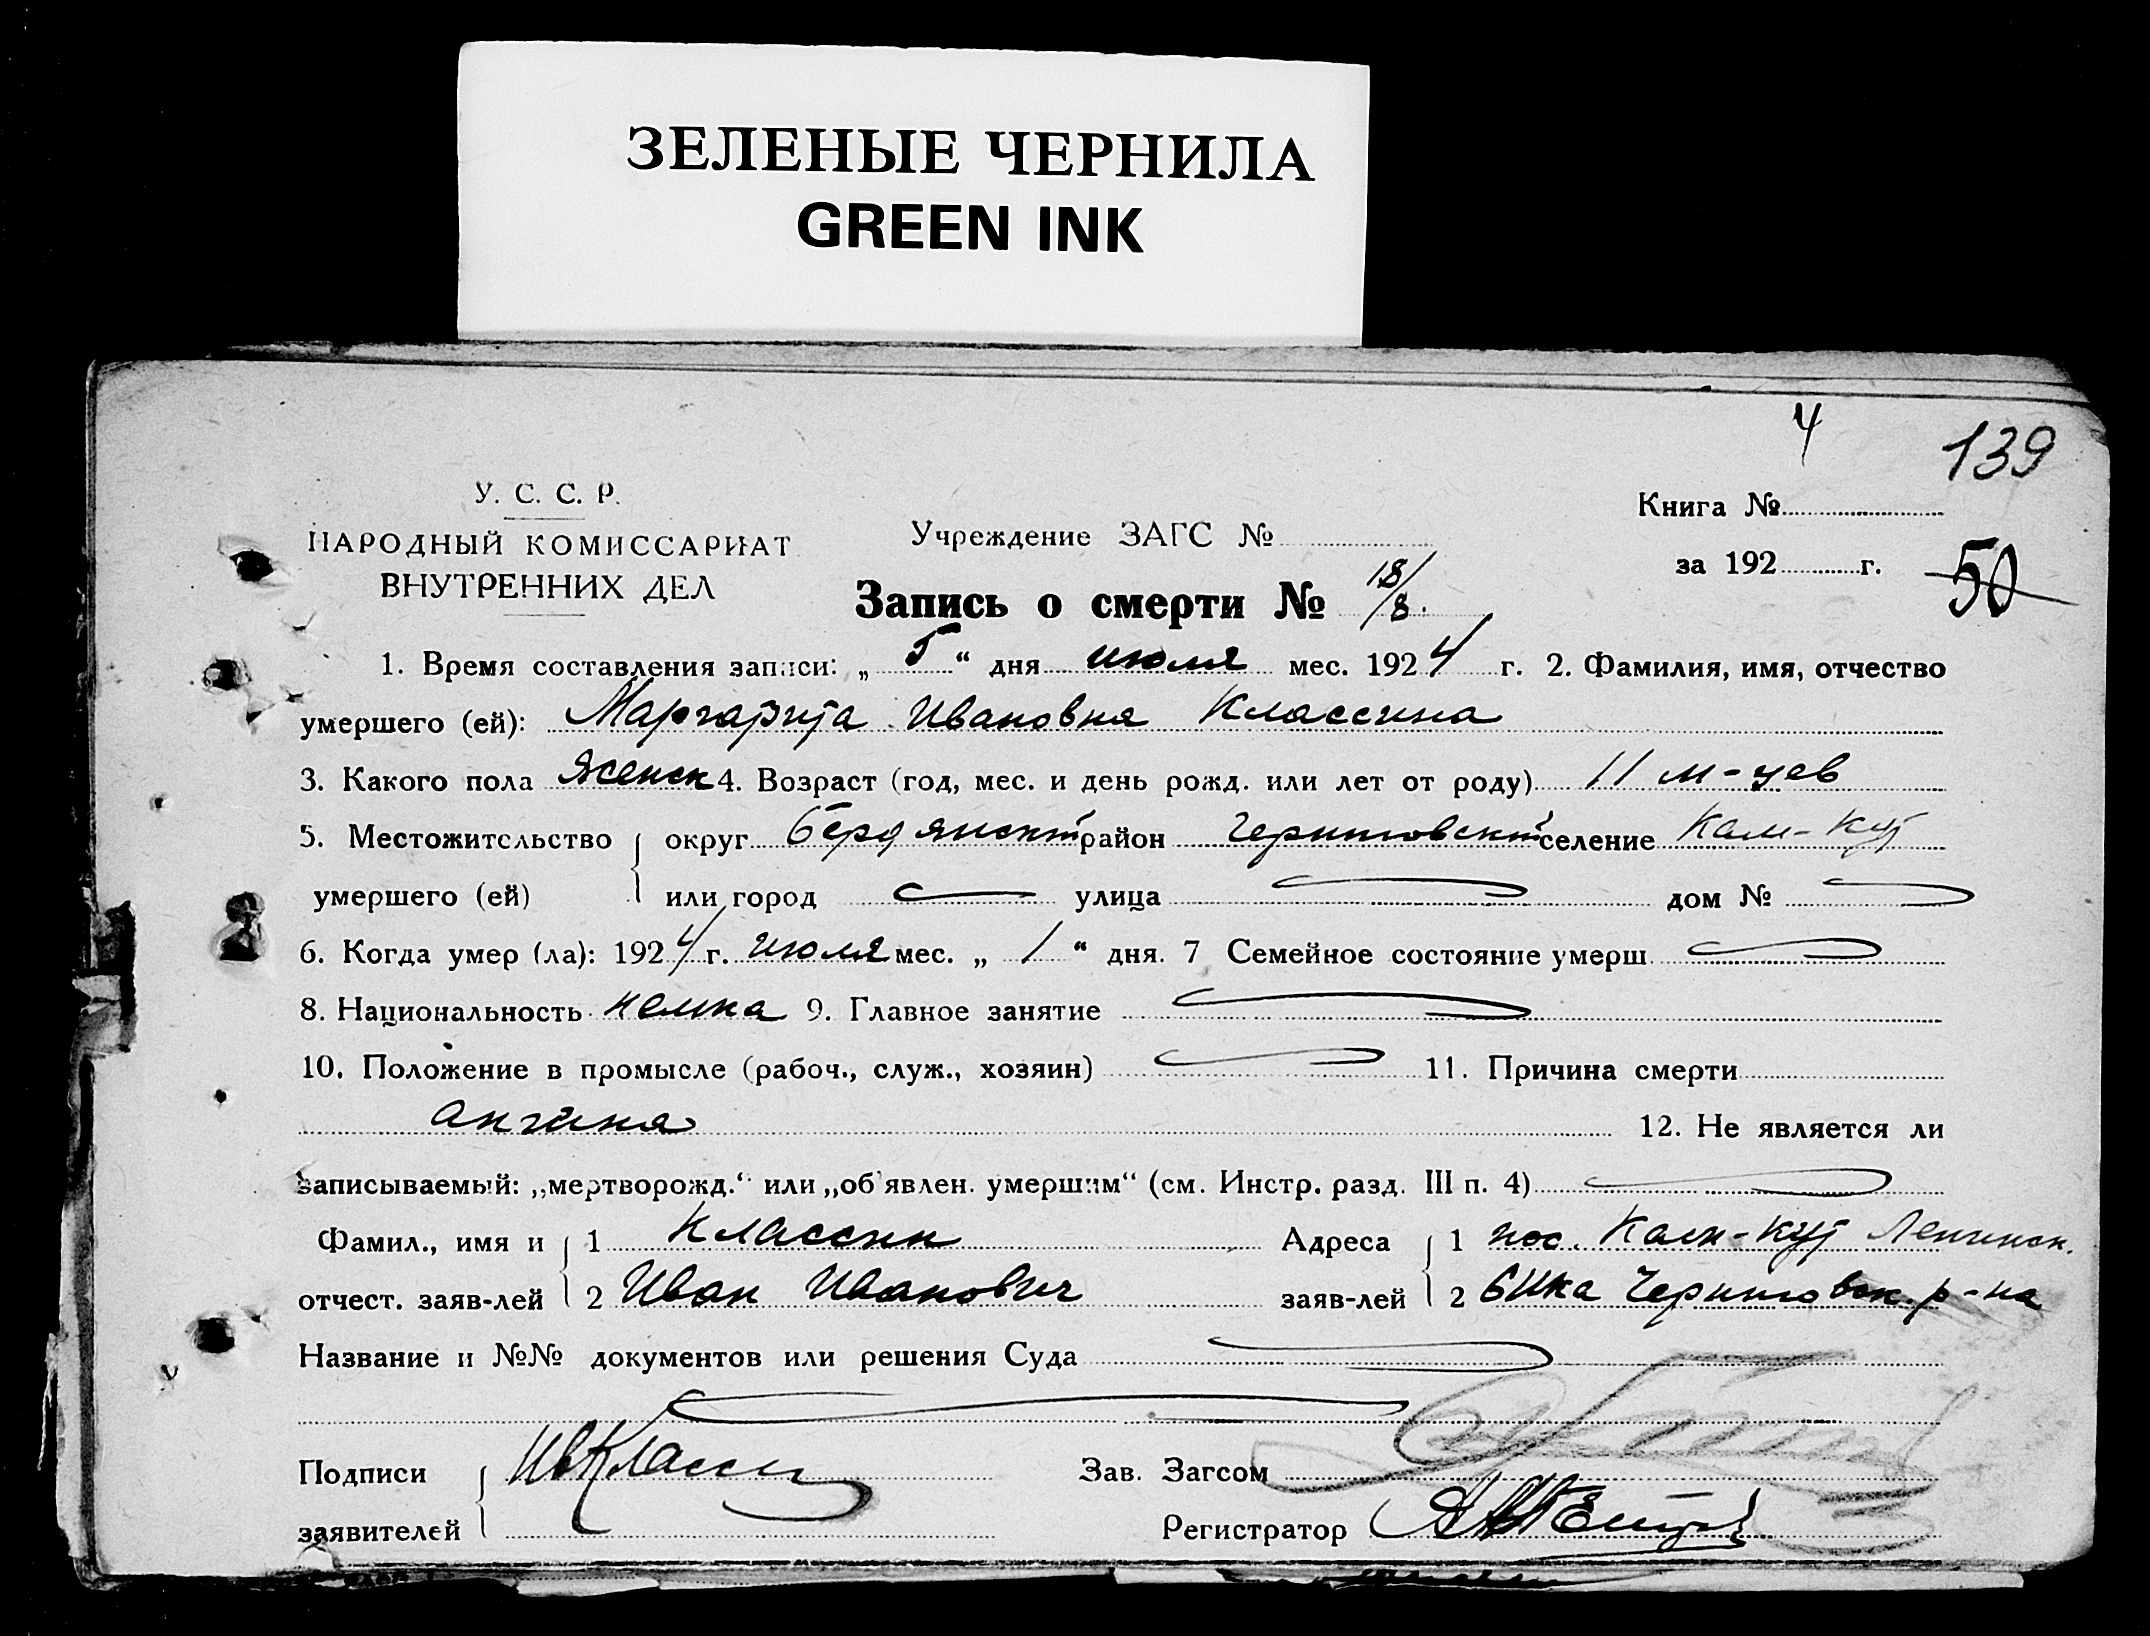 ЗЕЛЕНЫЕ ЧЕРНИЛА
GREEN INK
4
139
У. С. С. Р.
НАРОДНЫЙ КОМИССАРИАТ
ВНУТРЕННИХ ДЕЛ
Учреждение ЗАГС №
Книга №
за 192 г.
50
Запись о смерти № 18/8.
1. Время составления записи: „5“ дня июля мес. 1924 г. 2. Фамилия, имя, отчество
умершего (ей): Маргарита Ивановна Классина
3. Какого пола женск 4. Возраст (год, мес. и день рожд. или лет от роду) 11 м-цев
5. Местожительство округ Бердянский район Черниговский селение Кам-Кут
умершего (ей) или город улица дом №
6. Когда умер (ла): 1924 г. июля мес. „1“ дня. 7 Семейное состояние умерш.
8. Национальность немка 9. Главное занятие
10. Положение в промысле (рабоч., служ., хозяин) 11. Причина смерти
ангина 12. Не является ли
записываемый: „мертворожд.“ или „об'явлен. умершим“ (см. Инстр. разд. III п. 4)
Фамил., имя и 1 Классин Адреса 1 пос. Кам-Кут Ленинск.
отчест. заяв-лей 2 Иван Иванович заяв-лей 2 Черниговск. р-на
Название и №№ документов или решения Суда
Подписи ИвКласси Зав. Загсом
заявителей Регистратор